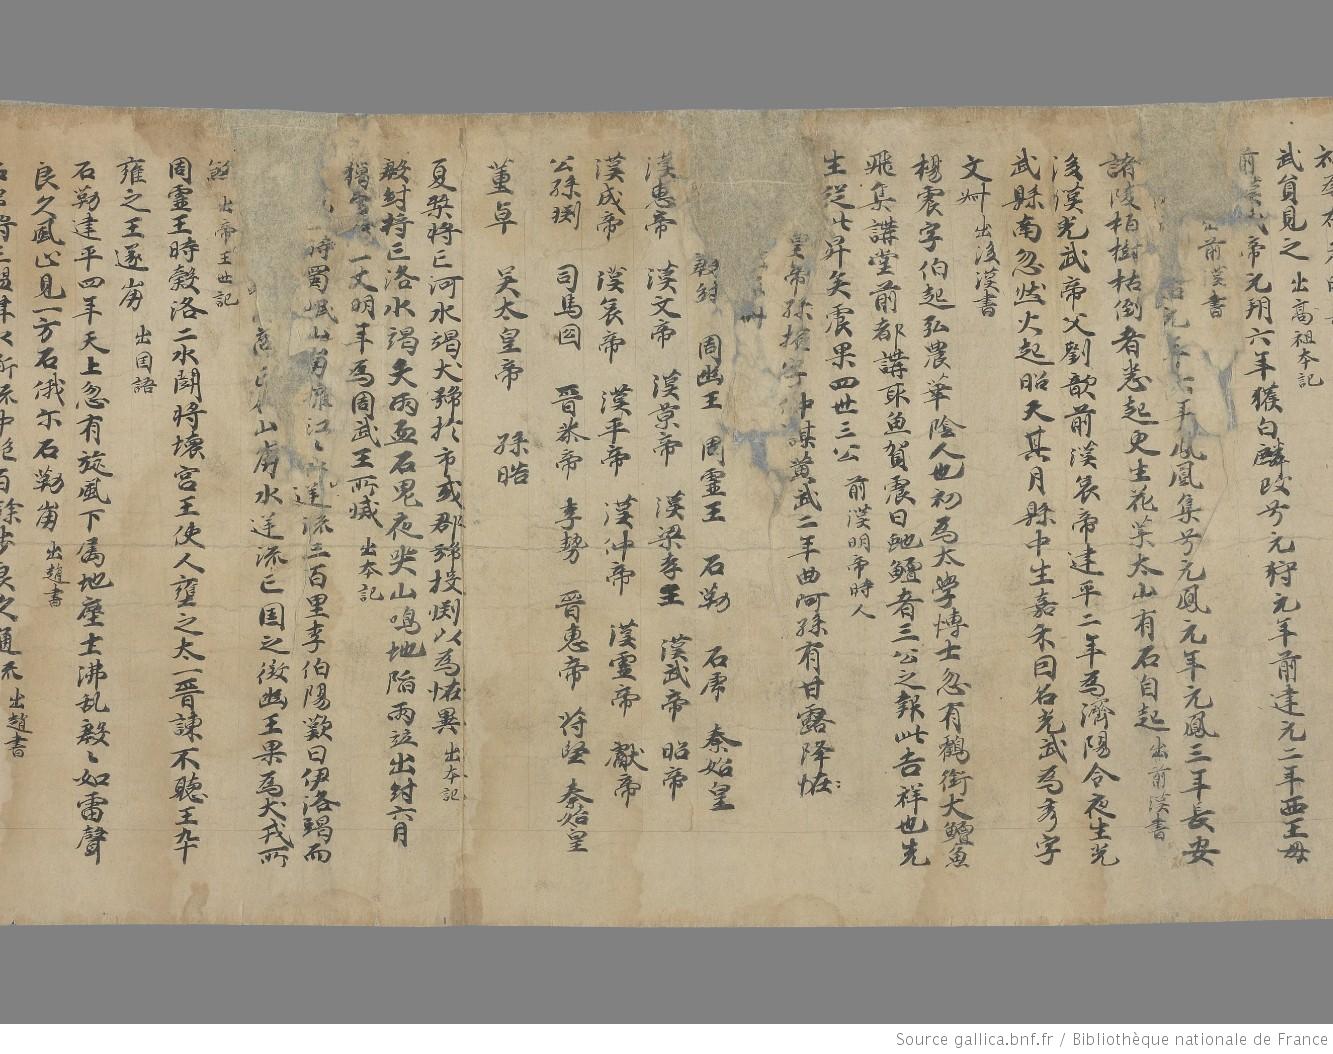 武負見之 出高祖本記
帝元朔六年獲白麟改号元狩元年前建元二年西王母
前漢書
年鳳凰集号元鳳元年元鳳三年長安
諸陵柏樹枯倒者悉起更生花葉太山有石自起 出前漢書
後漢光武帝父劉歆前漢哀帝建平二年為濟陽令夜生光
武縣南忽然火起昭天其月縣中生嘉禾因名光武為秀字
文州 出後漢書
楊震字伯起弘農華陰人也初為太學博士忽有鸛銜大鱣魚
飛集講堂前都講取魚賀震曰虵鱣者三公之報此吉祥也先
生從此昇矣震果四世三公 前漢明帝時人
皇帝孫權字仲謀黃武二年曲阿孫有甘露降
周幽王 周靈王 石勒 石虎 秦始皇
漢惠帝 漢文帝 漢景帝 漢梁孝王 漢武帝 昭帝
漢成帝 漢哀帝 漢平帝 漢沖帝 漢靈帝 獻帝
公孫渕 司馬囧 晉帝 李勢 晉惠帝 苻堅 秦始皇
董卓 吳太皇帝 孫皓
夏桀將亡河水竭犬號於市或郡號投渕以為恠異 出本記
殷紂將亡洛水竭天雨血石鬼夜哭山鳴地陷兩竝出紂六月
一丈明年為周武王所滅 出本記
時蜀岷山崩壅江江逆流三百里李伯陽歎曰伊洛竭而
山崩水逆流亡國之徵幽王果為犬戎所
出帝王世記
周靈王時穀洛二水鬪將壞宮王使人壅之太一晉諫不聽王卆
雍之王遂崩 出国語
石勒建平四年天上忽有旋風下属地塵土沸乱聲如雷聲
良久風止見一方石俄尓石勒崩 出趙書
出趙書
Source gallica.bnf.fr / Bibliothèque nationale de France